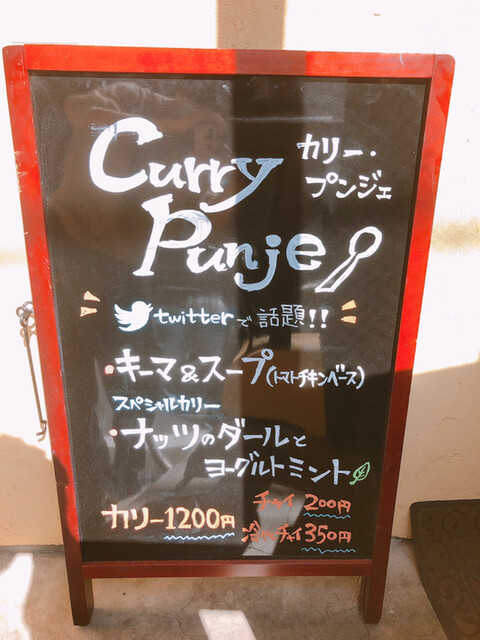 Curry
カリー・
プンジェ
Punje
twitterで話題!!
・キーマ&スープ(トマトチキンベース)
スペシャルカリー
・ナッツのダールと
ヨーグルトミント
チャイ 200円
カリー1200円
冷たいチャイ 350円